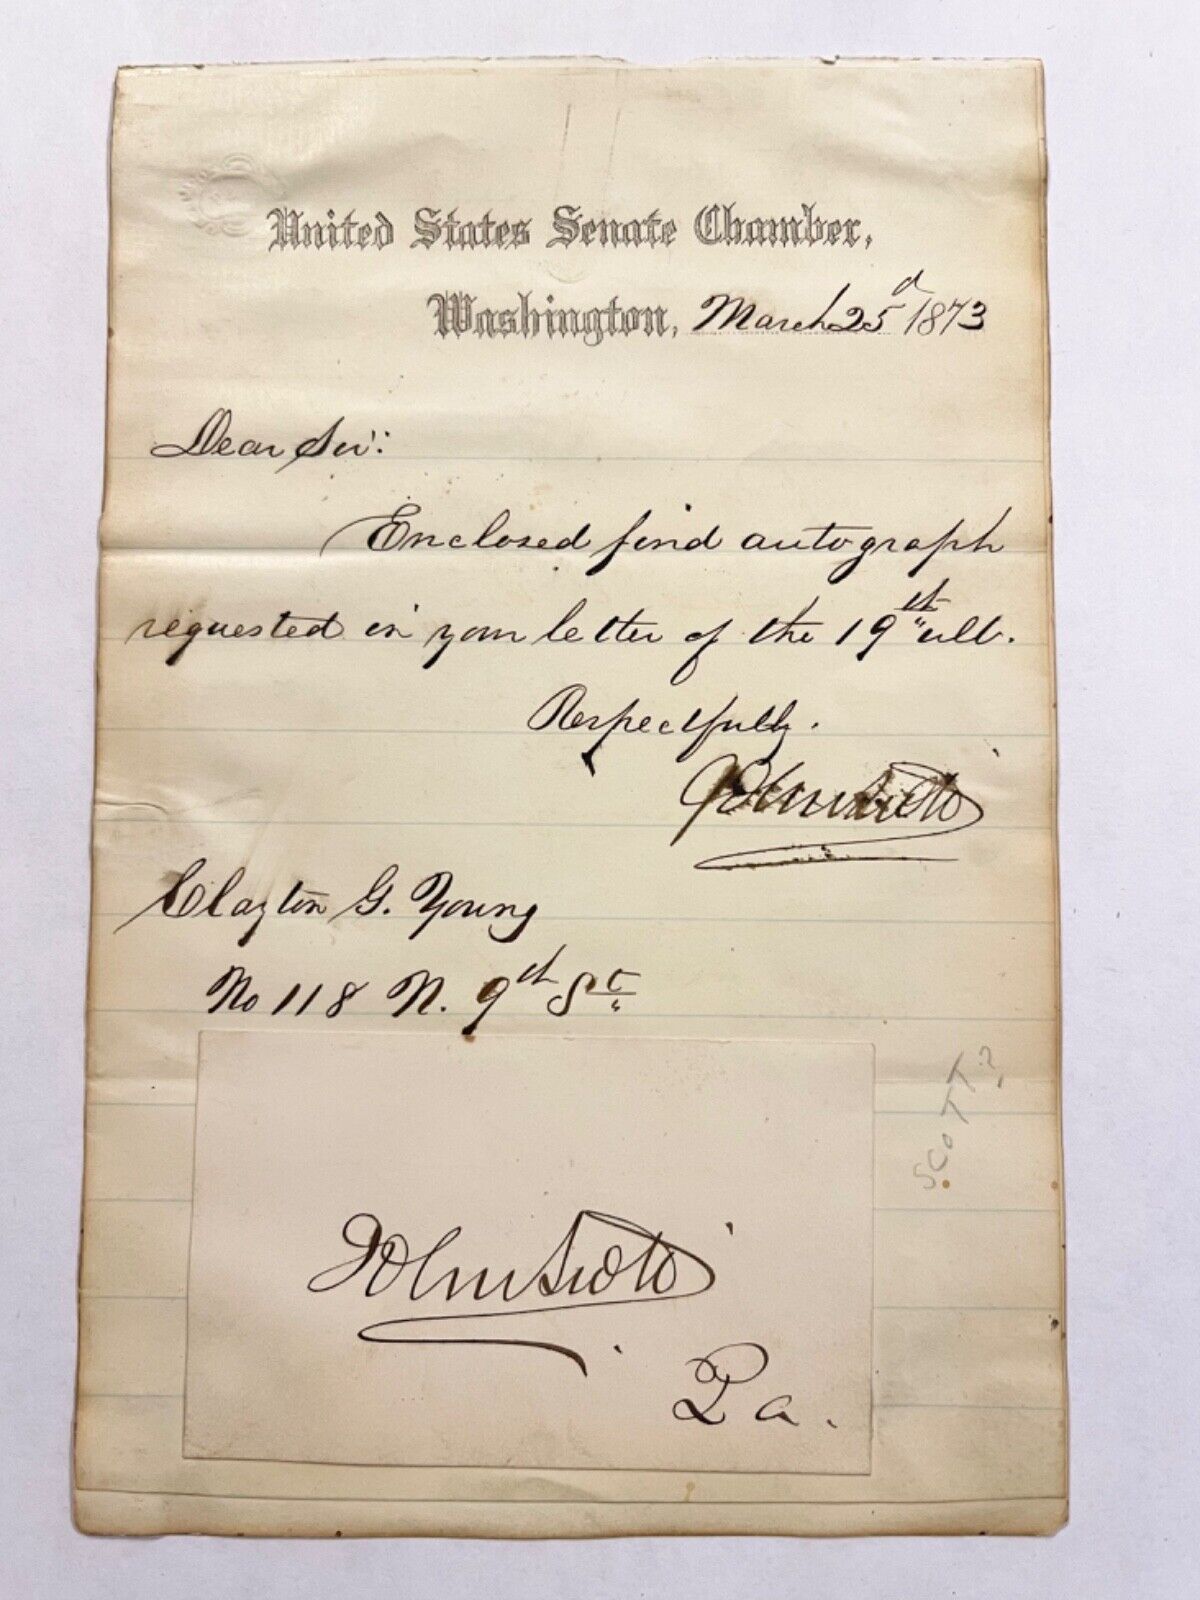 United States Senate Chamber,
Washington, March 25d 1873
Dear Sir:
Enclosed find autograph
requested in your letter of the 19th ult.
Respectfully.
John Scott
Clayton G. Young
No 118 N. 9th St
SCOTT?
John Scott
Pa.